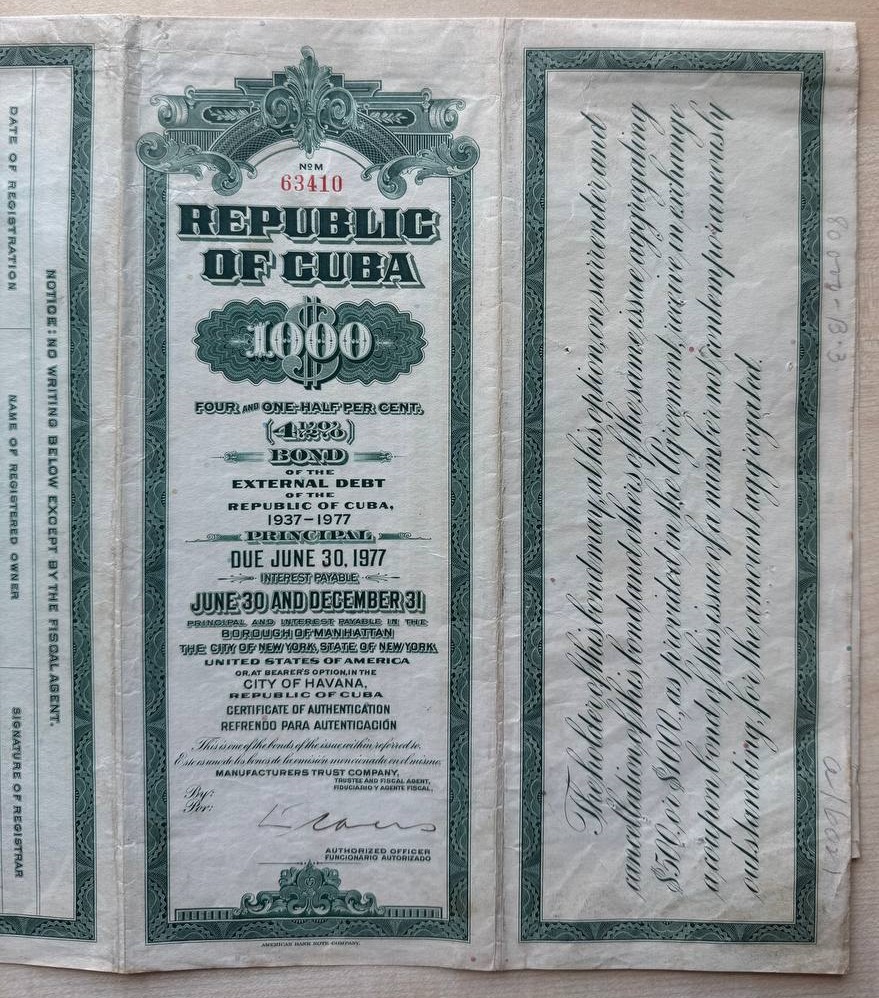 DATE OF REGISTRATION
NAME OF REGISTERED OWNER
SIGNATURE OF REGISTRAR
NOTICE: NO WRITING BELOW EXCEPT BY THE FISCAL AGENT.
Nº M
63410
REPUBLIC
OF CUBA
$1000
FOUR AND ONE-HALF PER CENT.
(4½%)
BOND
OF THE
EXTERNAL DEBT
OF THE
REPUBLIC OF CUBA,
1937–1977
PRINCIPAL
DUE JUNE 30, 1977
INTEREST PAYABLE
JUNE 30 AND DECEMBER 31
PRINCIPAL AND INTEREST PAYABLE IN THE
BOROUGH OF MANHATTAN
THE CITY OF NEW YORK, STATE OF NEW YORK,
UNITED STATES OF AMERICA
OR, AT BEARER'S OPTION, IN THE
CITY OF HAVANA,
REPUBLIC OF CUBA
CERTIFICATE OF AUTHENTICATION
REFRENDO PARA AUTENTICACIÓN
This is one of the bonds of the issue within referred to.
Este es uno de los bonos de la emisión mencionada en el mismo.
MANUFACTURERS TRUST COMPANY,
TRUSTEE AND FISCAL AGENT,
FIDUCIARIO Y AGENTE FISCAL,
By:
Por:
AUTHORIZED OFFICER
FUNCIONARIO AUTORIZADO
AMERICAN BANK NOTE COMPANY.
The holder of this bond may, at his option, on surrender and
cancellation of this bond and others of the same issue aggregating
$500. or $1,000., as provided in the Agreement, receive in exchange
a coupon bond of this issue of a number not contemporaneously
outstanding, for the amount aggregated.